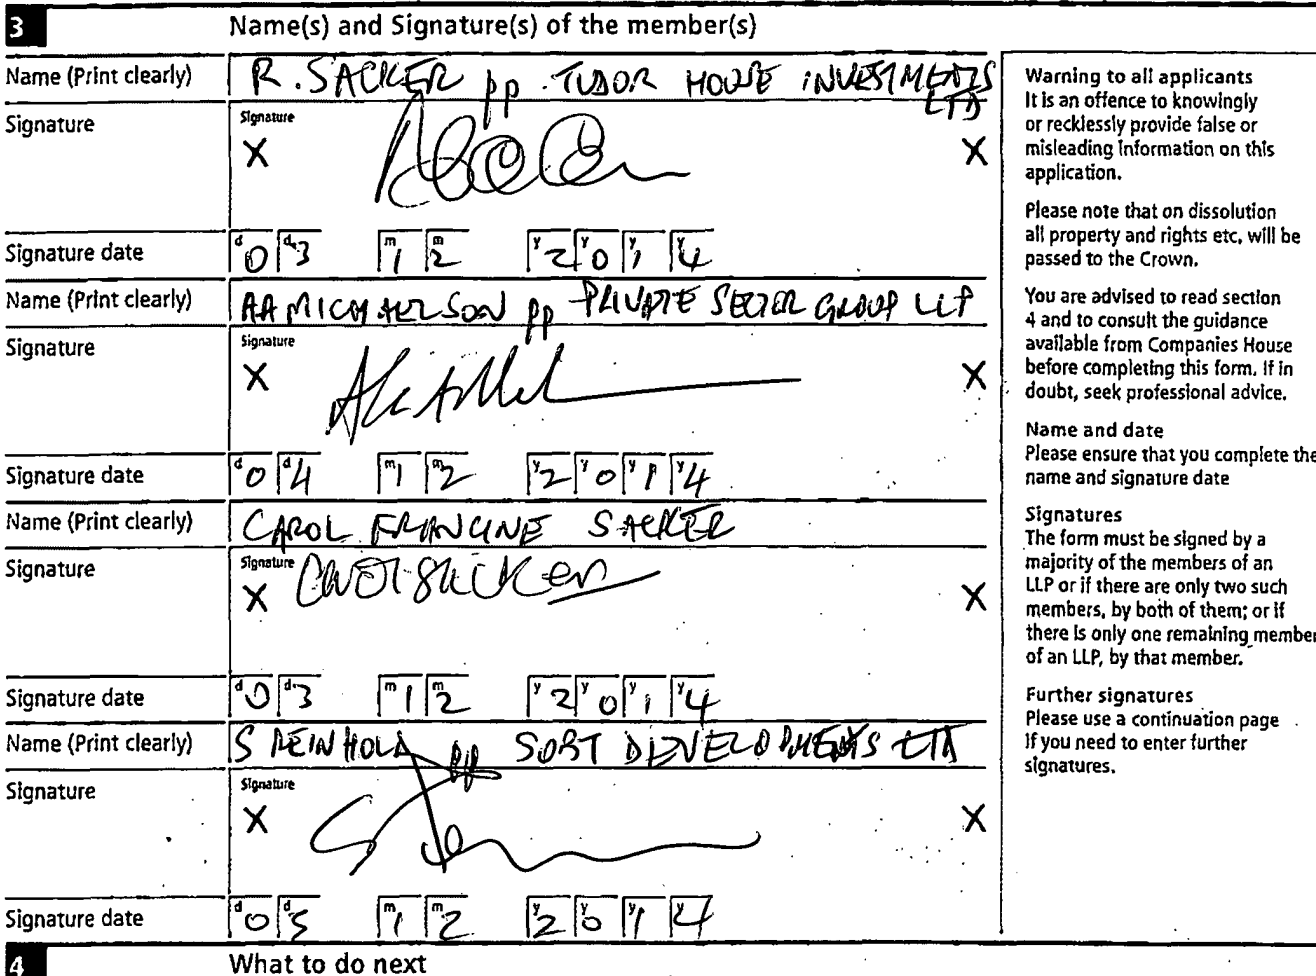 3 Name(s) and Signature(s) of the member(s)
Name (Print clearly) R. SACKER pp. TUDOR HOUSE INVESTMENTS
LTD
Signature Signature
X X
Signature date d 0 d 3 m 1 m 2 y 2 y 0 y 1 y 4
Name (Print clearly) AA MICHAELSON pp PRIVATE SECTOR GROUP LLP
Signature Signature
X X
Signature date d 0 d 4 m 1 m 2 y 2 y 0 y 1 y 4
Name (Print clearly) CAROL FRANCINE SACKER
Signature Signature
X Carol Sacker X
Signature date d 0 d 3 m 1 m 2 y 2 y 0 y 1 y 4
Name (Print clearly) S REINHOLD pp DEVELOPMENTS LTD
Signature Signature
X X
Signature date d 0 d 5 m 1 m 2 y 2 y 0 y 1 y 4
4 What to do next
Warning to all applicants
It is an offence to knowingly
or recklessly provide false or
misleading information on this
application.
Please note that on dissolution
all property and rights etc. will be
passed to the Crown.
You are advised to read section
4 and to consult the guidance
available from Companies House
before completing this form. If in
doubt, seek professional advice.
Name and date
Please ensure that you complete the
name and signature date
Signatures
The form must be signed by a
majority of the members of an
LLP or if there are only two such
members, by both of them; or if
there is only one remaining member
of an LLP, by that member.
Further signatures
Please use a continuation page
if you need to enter further
signatures.